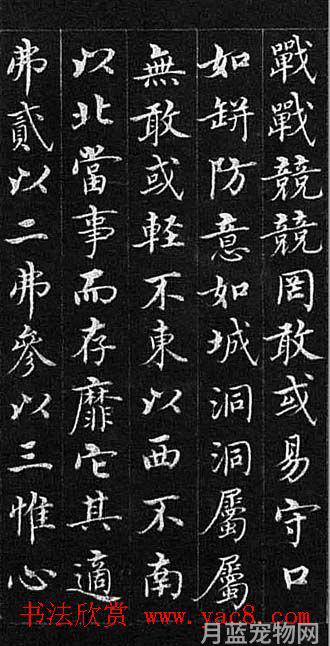 戰戰競競罔敢或易守口
如缾防意如城洞洞屬屬
無敢或輕不東以西不南
以北當事而存靡它其適
弗貳以二弗參以三惟心
书法欣赏 www.yac8.com
月蓝宠物网